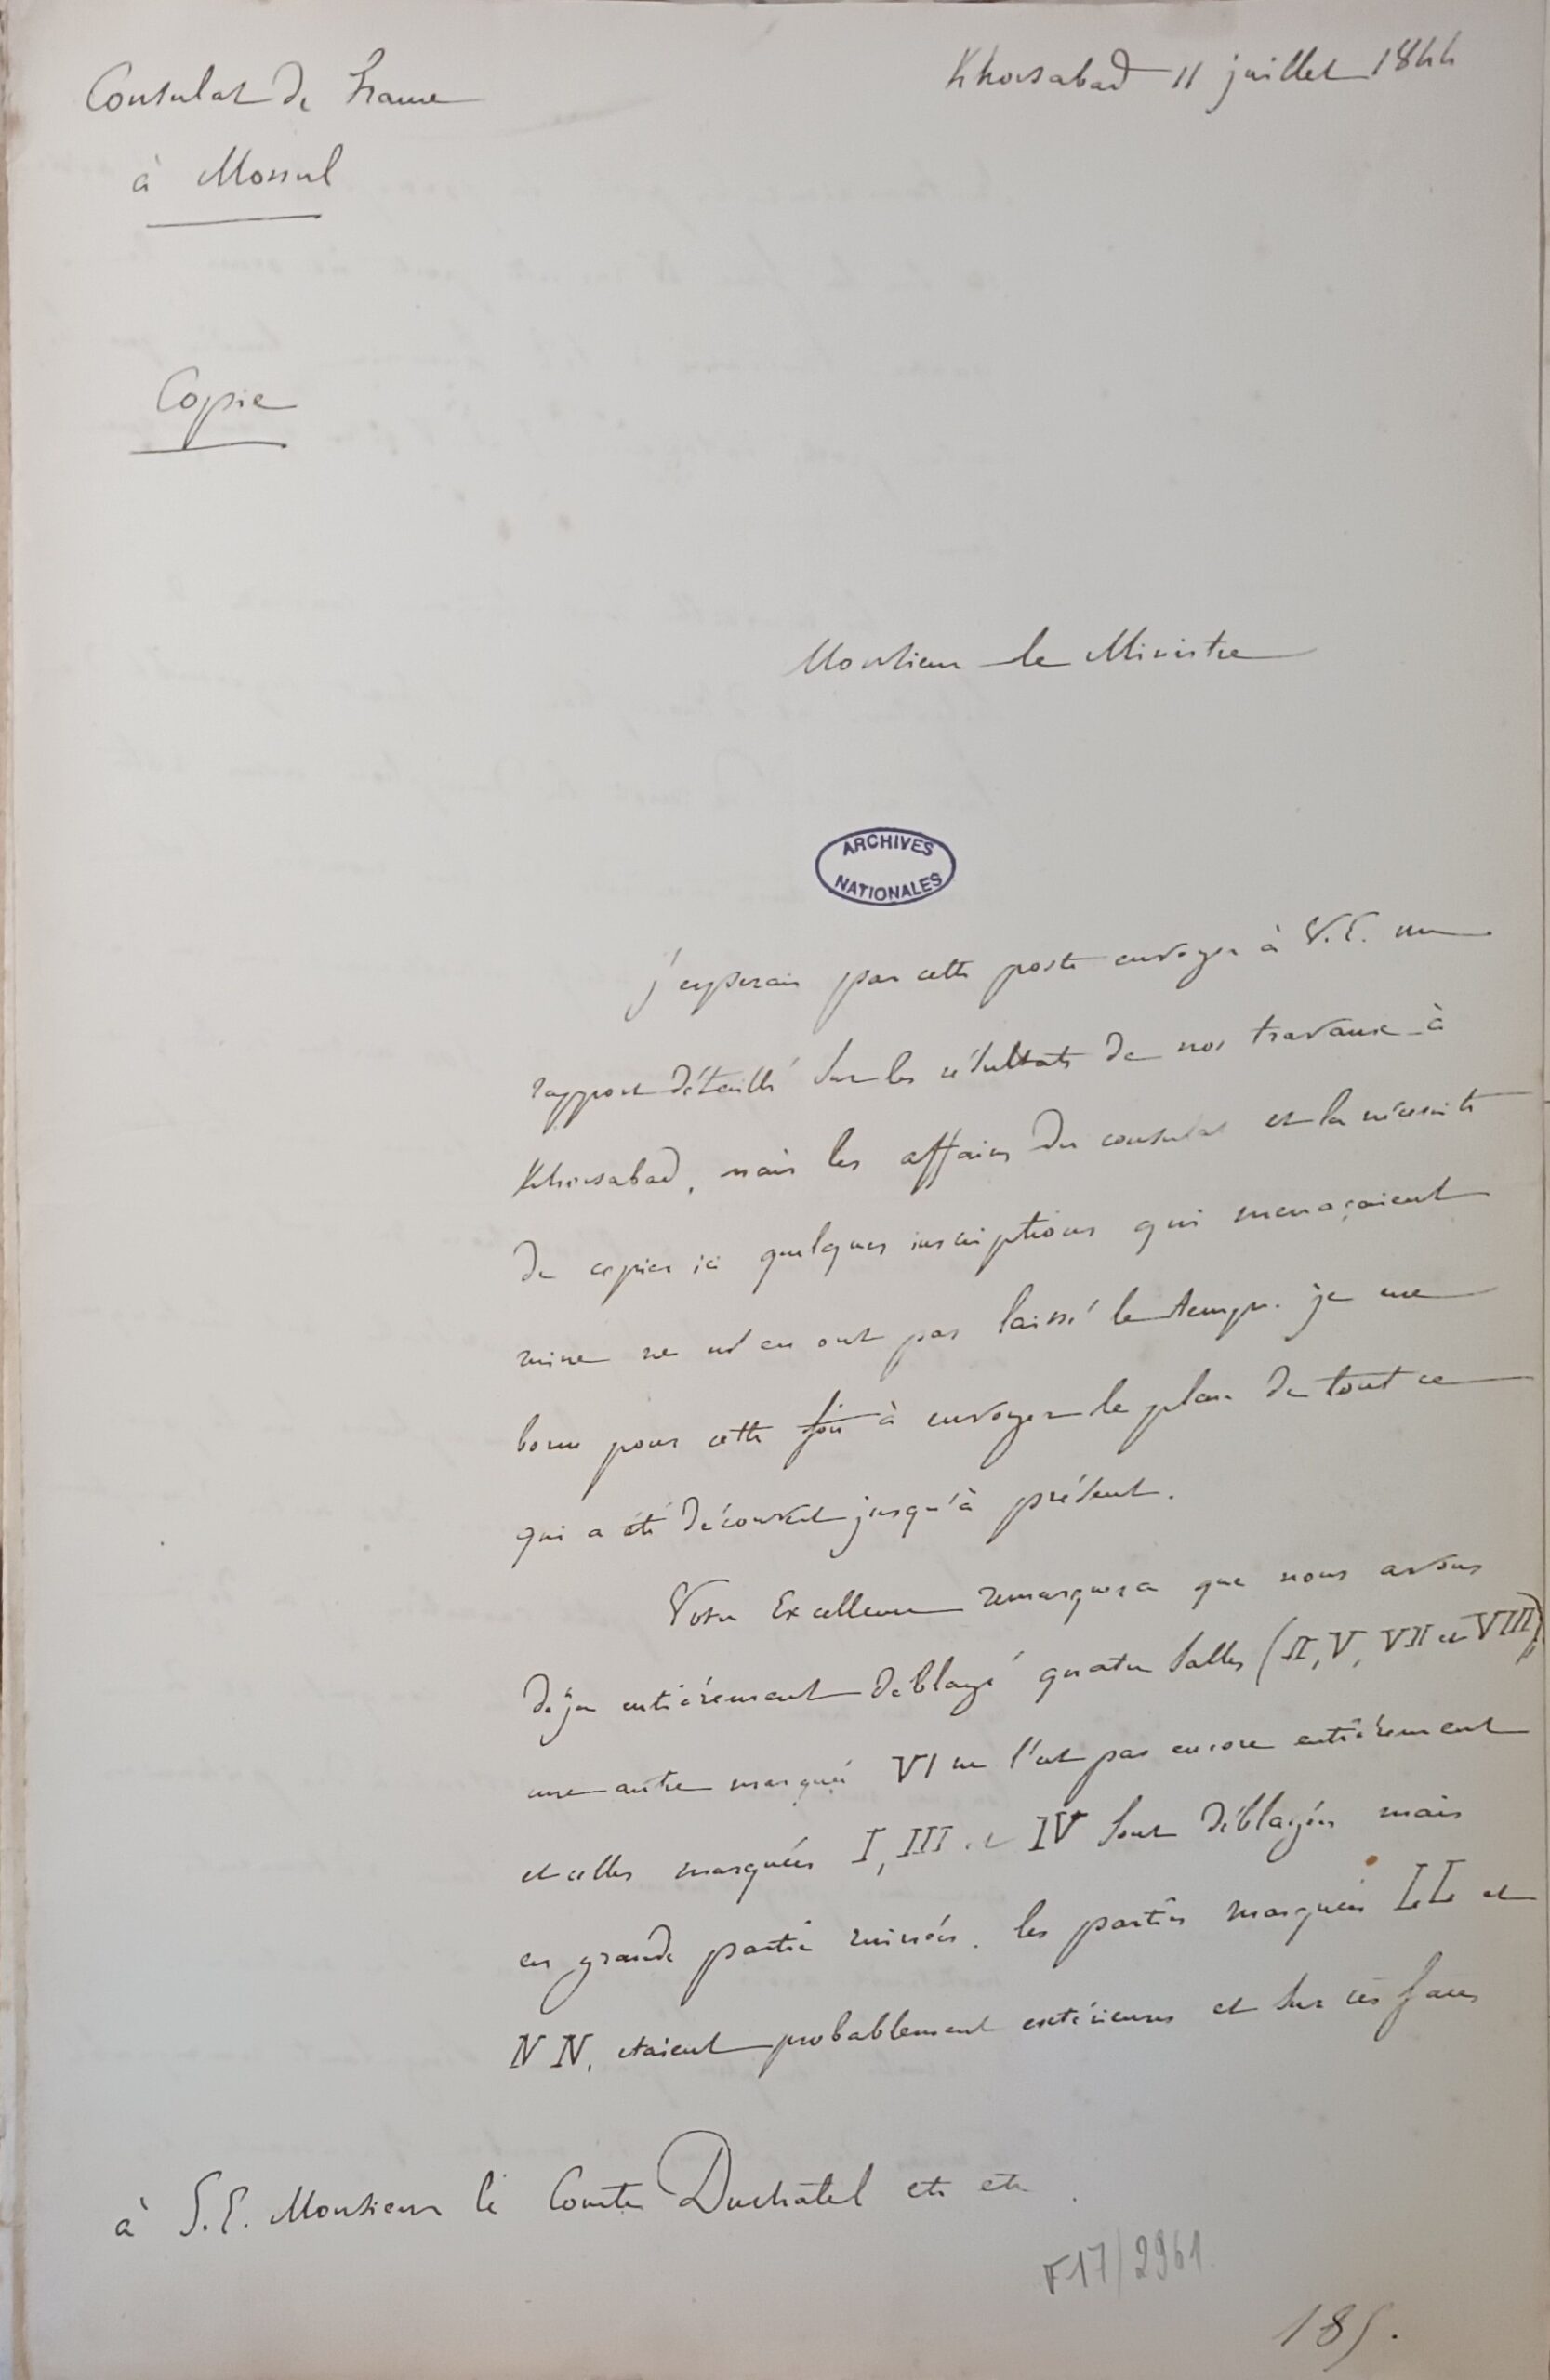 Consulat de France
à Mossul
Khorsabad 11 juillet 1844
Copie
Monsieur le Ministre
ARCHIVES
NATIONALES
j'esperais par cette poste envoyer à V.E. un
rapport détaillé sur les résultats de nos travaux à
Khorsabad, mais les affaires du consulat et la nécessité
de copier ici quelques inscriptions qui menaçaient
ruine ne m'en ont pas laissé le temps. je me
borne pour cette fois à envoyer le plan de tout ce
qui a été découvert jusqu'à présent.
Votre Excellence remarquera que nous avons
déja entiérement deblayé quatre salles (II, V, VII et VIII)
une autre marquée VI ne l'est pas encore entiérement
et celles marquées I, III et IV sont déblayées mais
en grande partie ruinées. les parties marquées LL et
NN, etaient probablement extérieures et sur ces faces
à S.E. Monsieur le Comte Duchatel etc etc.
F17/2961.
185.